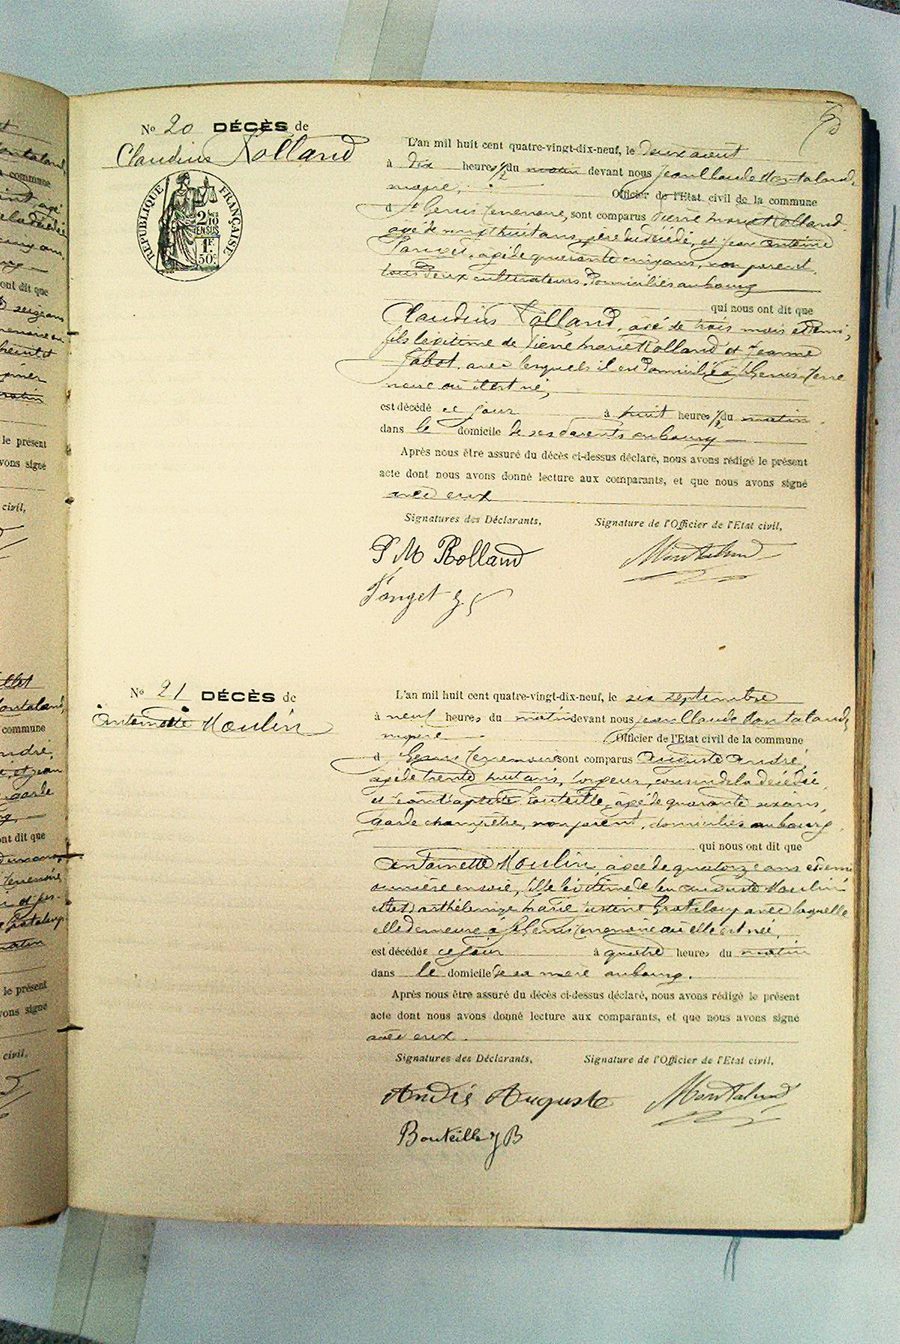 No 20 DÉCÈS de
Claudius Rolland
RÉPUBLIQUE FRANÇAISE
2/10 EN SUS
1F 50c
L'an mil huit cent quatre-vingt-dix-neuf, le deux août
à dix heures 1/2 du matin devant nous Jean Claude Montaland,
maire, Officier de l'Etat civil de la commune
d St Genis Terrenoire, sont comparus Pierre Marie Rolland
agé de vingt huit ans, père du décédé, et Jean Antoine
agé de quarante cinq ans, non parent,
tous deux cultivateurs, domiciliés au bourg
qui nous ont dit que
Claudius Rolland, agé de trois mois et demi,
fils légitime de Pierre Marie Rolland et Jeanne
avec lesquels il est domicilié à St Genis Terre
noire où il est né,
est décédé ce jour à huit heures 1/2 du matin
dans le domicile de ses parents au bourg
Après nous être assuré du décès ci-dessus déclaré, nous avons rédigé le présent
acte dont nous avons donné lecture aux comparants, et que nous avons signé
avec eux
Signatures des Déclarants, Signature de l'Officier de l'Etat civil,
P M Rolland Montaland
No 21 DÉCÈS de
Antoinette Moulin
L'an mil huit cent quatre-vingt-dix-neuf, le six septembre
à neuf heures du matin devant nous Jean Claude Montaland,
maire Officier de l'Etat civil de la commune
d St Genis Terrenoire sont comparus Auguste André,
agé de trente huit ans, cousin de la décédée
et Jean Baptiste Bouteille, agé de quarante six ans,
garde champêtre, non parent, domiciliés au bourg,
qui nous ont dit que
Antoinette Moulin, agée de quatorze ans et demi
ouvrière en soie, fille légitime de feu Auguste Moulin
et de Barthélemize Marie Justine Grataloup avec laquelle
elle demeure à St Genis Terrenoire où elle est née,
est décédée ce jour à quatre heures du matin
dans le domicile de sa mère au bourg.
Après nous être assuré du décès ci-dessus déclaré, nous avons rédigé le présent
acte dont nous avons donné lecture aux comparants, et que nous avons signé
avec eux.
Signatures des Déclarants, Signature de l'Officier de l'Etat civil,
André Auguste Montaland
Bouteille J B